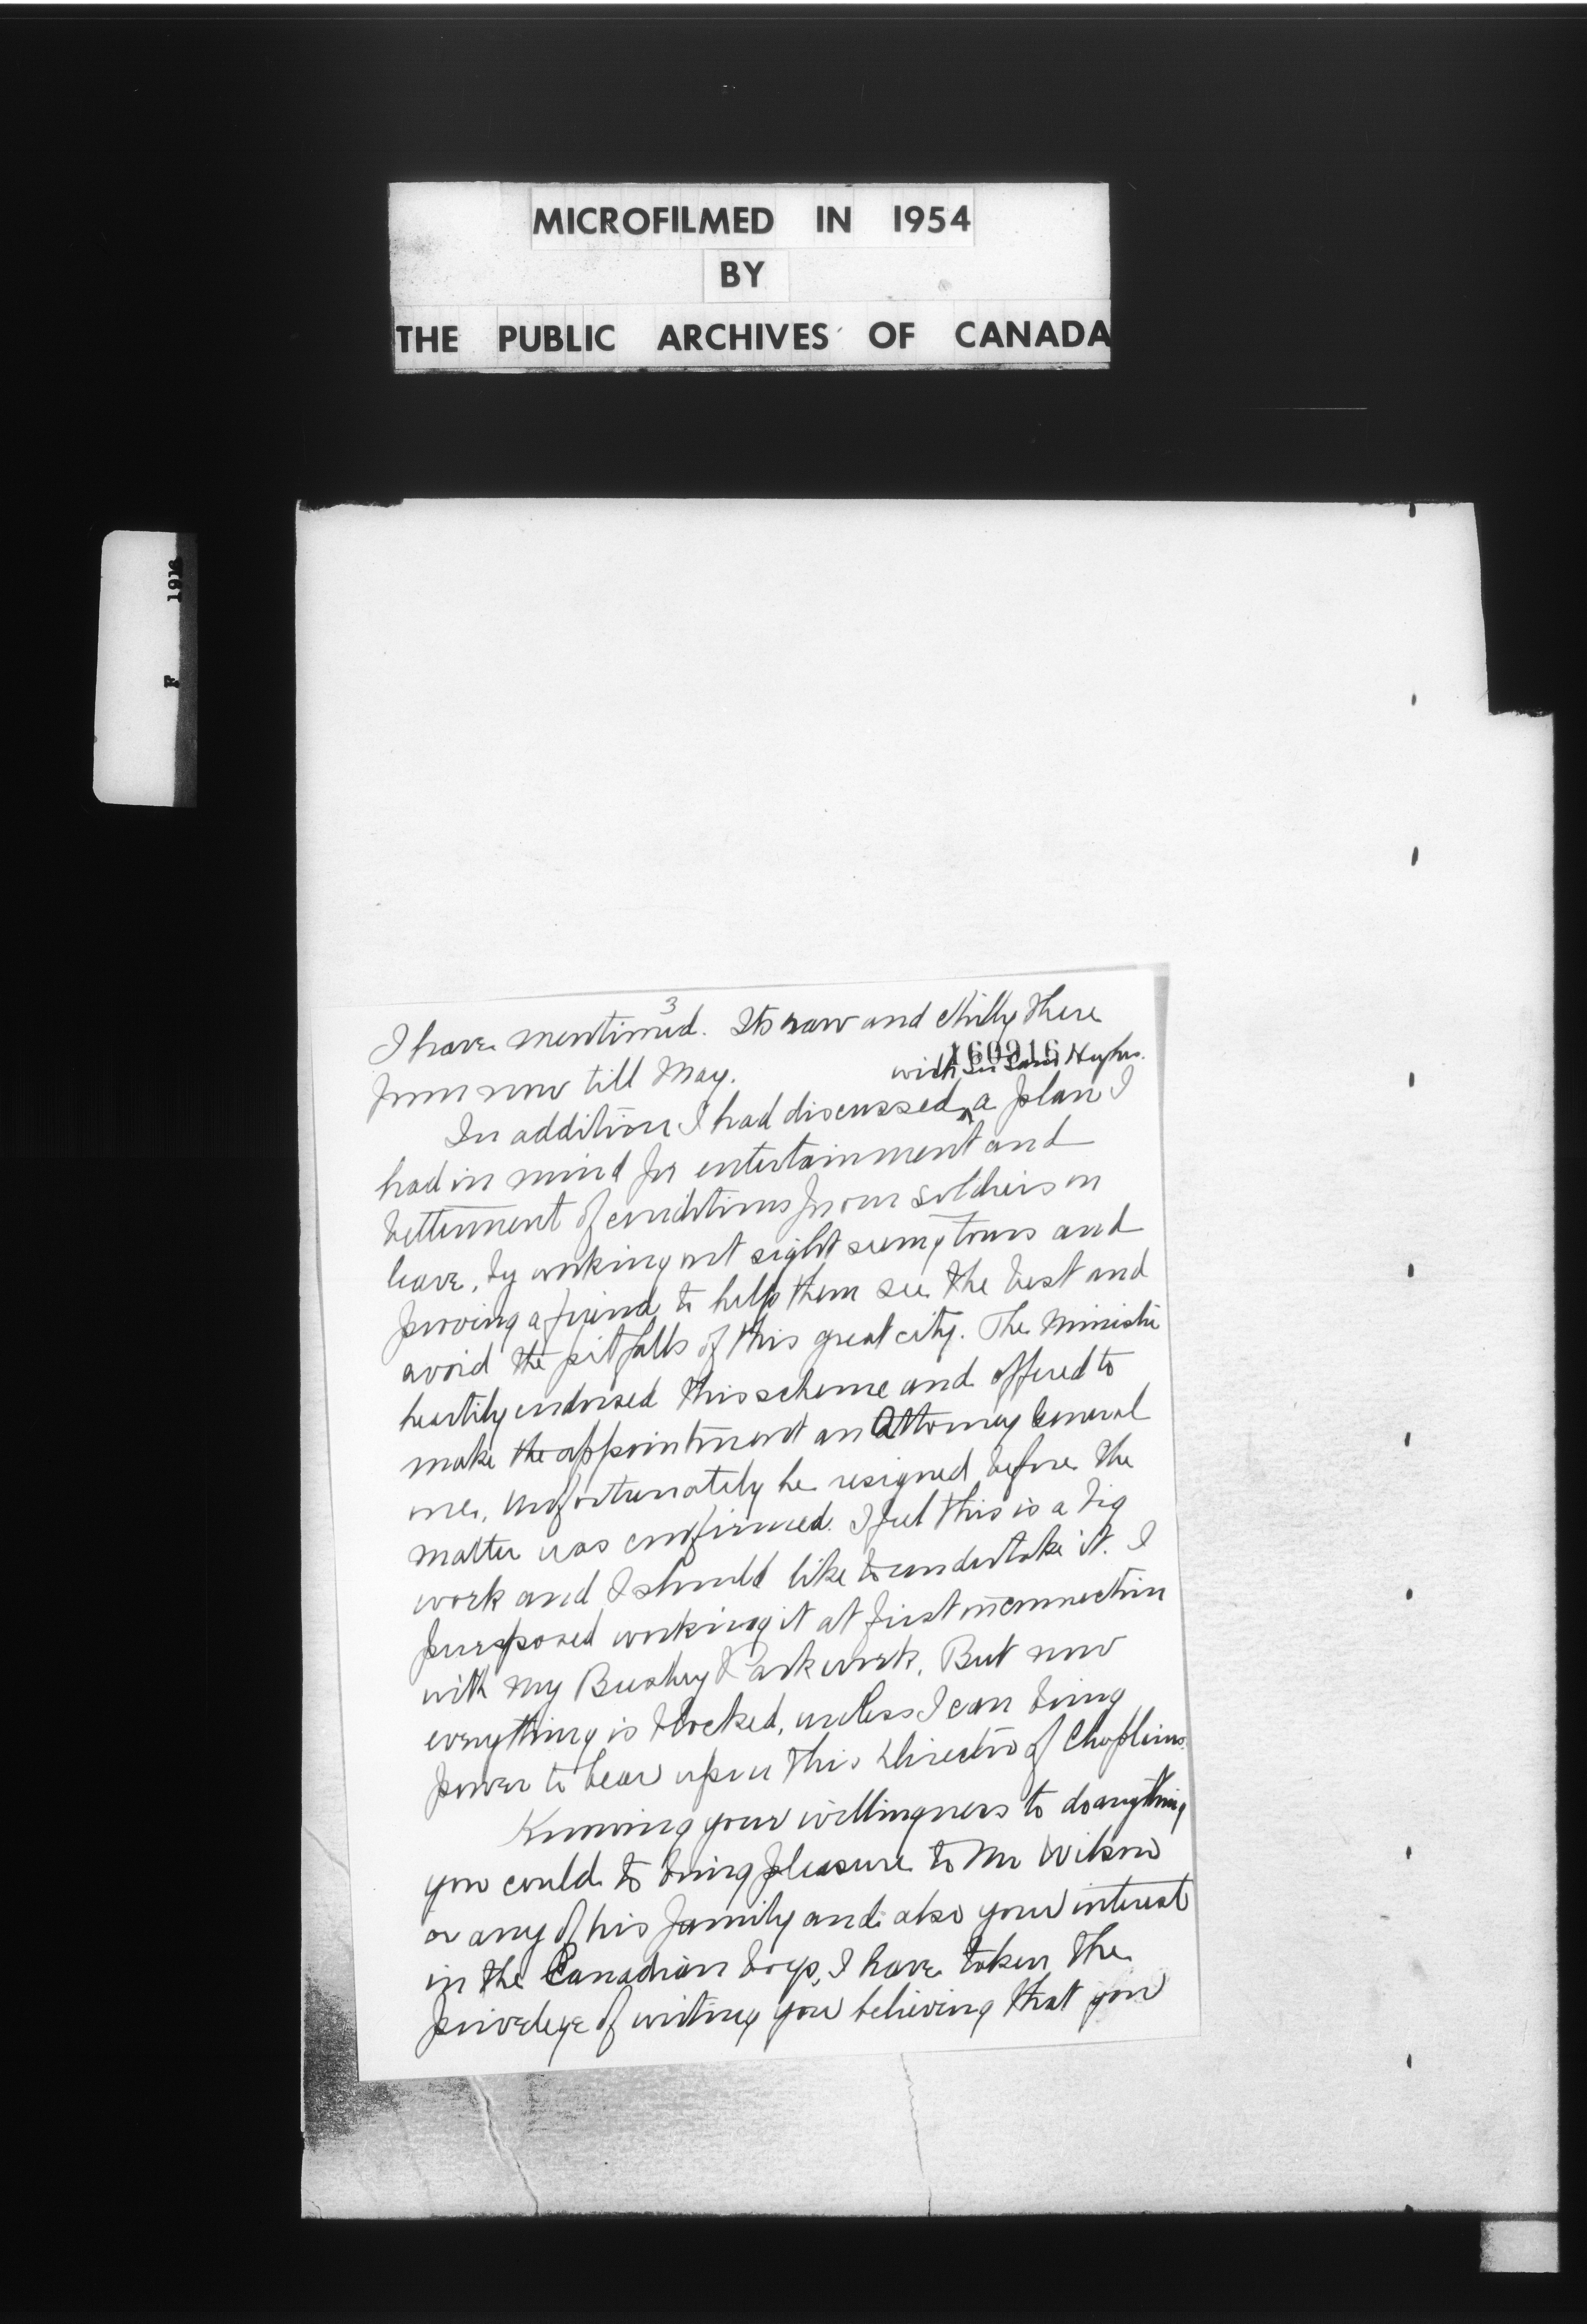 MICROFILMED IN 1954
BY
THE PUBLIC ARCHIVES OF CANADA
F 1916
3
I have mentioned. Its raw and chilly there
160916
from now till May. with Sir Sam Hughes.
In addition I had discussed ^ a plan I
had in mind for entertainment and
betterment of conditions for our soldiers on
leave, by working out sight seeing tours and
proving a friend to help them see the best and
avoid the pitfalls of this great city. The Minister
heartily endorsed this scheme and offered to
make the appointment an Attorney General
one. Unfortunately he resigned before the
matter was confirmed. I feel this is a big
work and I should like to undertake it. I
purposed working it at first in connection
with my Bushey Park work. But now
everything is blocked, unless I can bring
power to bear upon this Director of Chaplains.
Knowing your willingness to do anything
you could to bring pleasure to Mr Wilson
or any of his family and also your interest
in the Canadian boys, I have taken the
privelege of writing you believing that you